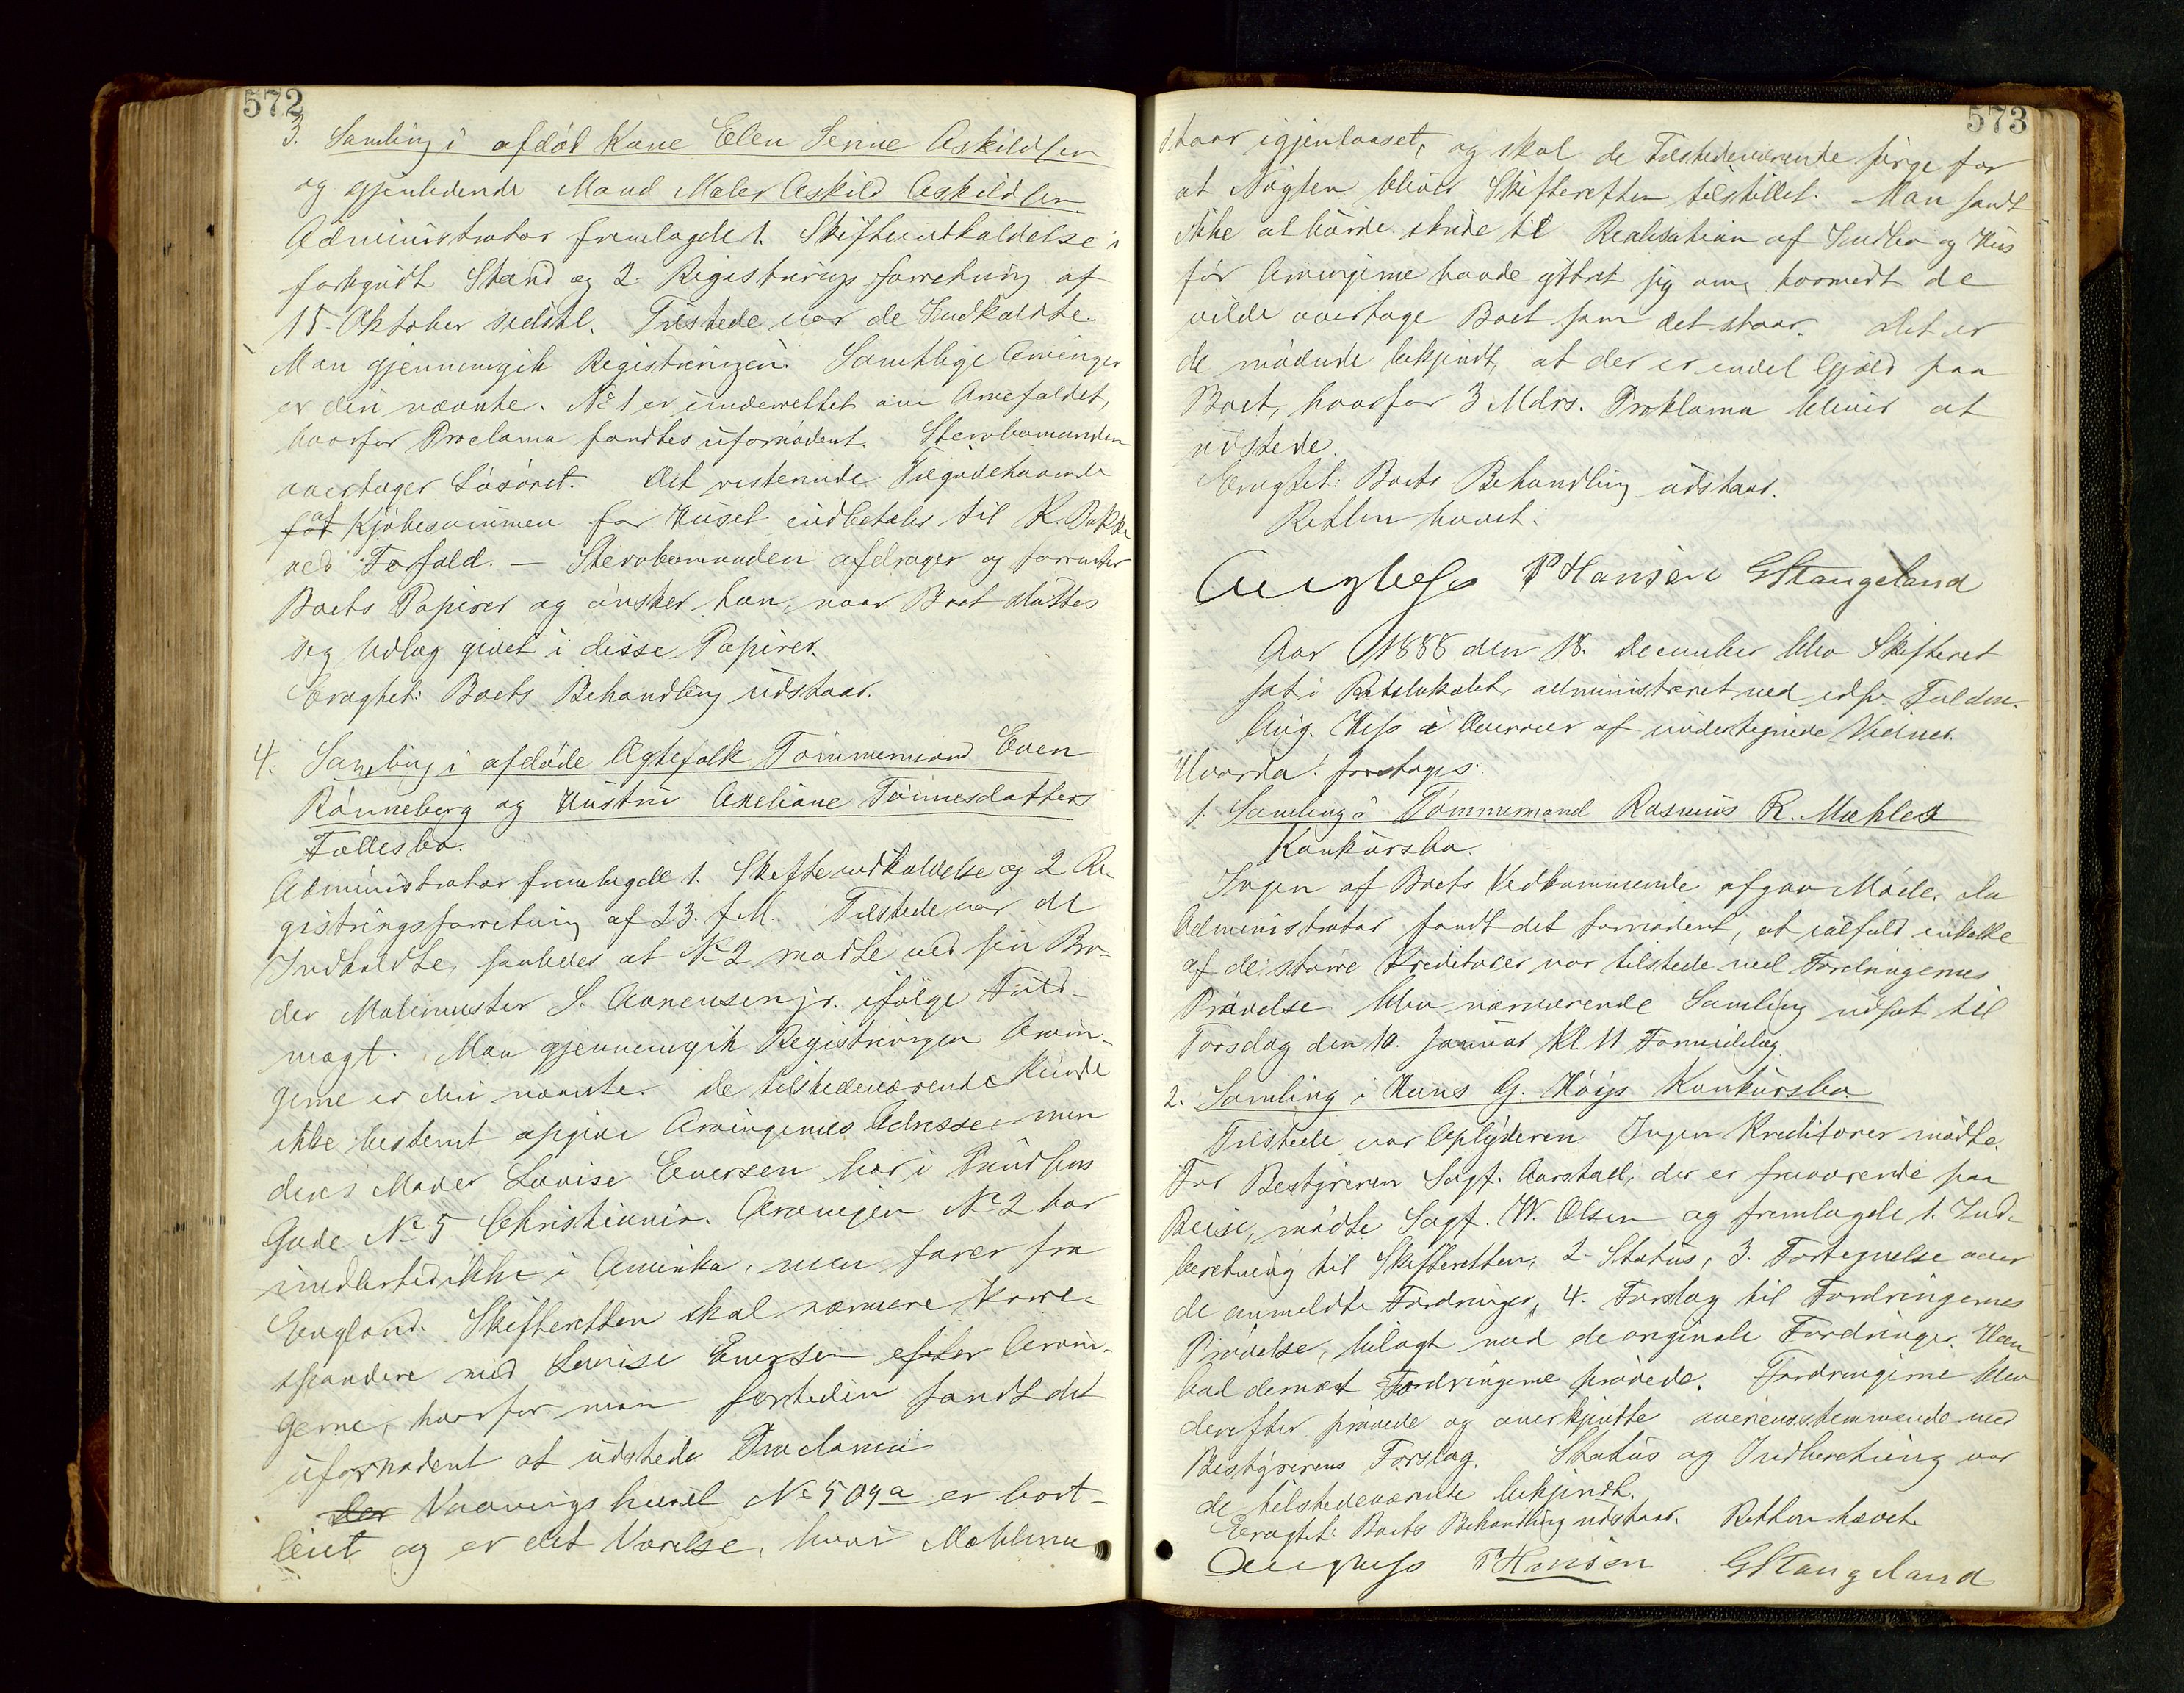 572
3. Samling i afdød Kone Elen Serine Askildsen
og gjenlevende Mand Maler Askild Askildsen
Administrator fremlagde 1. Skifteindkaldelse i
forkyndt Stand og 2. Registrerings forretning af
15. Oktober sidstl. Tilstede var de Indkaldte.
Man gjennemgik Registreringen. Samtlige Arvinger
er deri nævnte. No 1 er underrettet om Arvefaldet,
hvorfor Proclama fandtes ufornødent. Stervbomanden
overtager Løsøret. Det resterende Tilgodehavende
for af Kjøbesummen for Huset indbetales til K. Bakke
ved Forfald. – Stervbomanden afdrager og forrenter
Boets Papirer og ønsker han, naar Boet sluttes
sig Udlæg givet i disse Papirer.
Eragtet: Boets Behandling udstaar.
4. Samling i afdøde Ægtefolk Tømmermand Even
Rønneberg og Hustru Axeliane Tønnesdatters
Fællesbo.
Administrator fremlagde 1. Skifteindkaldelse og 2 Re-
gistringsforretning af 23. f. M. Tilstede var de
Indkaldte, saaledes at No 2 mødte ved sin Bro-
der Malermester S. Aanensen jr. ifølge Fuld-
magt. Man gjennemgik Registreringen Arvin-
gerne er deri nævnte. De tilstedeværende kunde
ikke bestemt opgive Arvingernes Adresser men
deres Moder Lovise Eversen bor i Pundsens
Gade No 5 Christiania. Arvingen No 2 bor
imidlertid ikke i Amerika, men farer fra
England. Skifteretten skal nærmere korre-
spondere med Lovise Eversen efter Arvin-
gerne, hvorfor man forsteden fandt det
ufornødent at udstede Proclama
Der Vaaningshuset No 509a er bort-
leiet og er det Værelse, hvori Møblerne
573
staar igjenlaaset, og skal de Tilstedeværende sørge for
at Nøglen bliver Skifteretten tilstillet. Man fandt
ikke at burde skride til Realisation af Indbo og Hus
før Arvingerne havde yttret sig om, hvorvidt de
vilde overtage Boet som det staar. Det er
de mødende bekjendt, at der er endel Gjæld paa
Boet, hvorfor 3 Mdrs. Proklama bliver at
udstede.
Eragtet: Boets Behandling udstaar.
Retten hævet.
Aug Hess P Hansen G Stangeland
Aar 1888 den 18. december blev Skifteret
sat i Retslokalet, administreret ved edsv. Fuldm.
Aug. Hess i Overvær af undertegnede Vidner.
Hvorda foretoges:
1. Samling i Tømmermand Rasmus R. Mæhles
Konkursbo.
Ingen af Boets Vedkommende afgav Møde. Da
Administrator fandt det fornødent, at ialfald enkelte
af de større Kreditorer var tilstede ved Fordringernes
Prøvelse blev nærværende Samling udsat til
Torsdag den 10. Januar Kl 11 Formiddag.
2. Samling i Hans G. Høies Konkursbo
Tilstede var Opbyderen Ingen Kreditorer mødte.
For Bestyreren Sagf. Aarstad, der er fraværende paa
Reise, mødte Sagf. W. Olsen og fremlagde 1. Ind-
beretning til Skifteretten, 2. Status, 3. Fortegnelse over
de anmeldte Fordringer, 4. Forslag til Fordringernes
Prøvelse, bilagt med de originale Fordringer. Han
bad dernæst Fordringerne prøvede. Fordringerne blev
derefter prøvede og anerkjendte overensstemmende med
Bestyrerens Forslag. Status og Indberetning var
de tilstedeværende bekjendt.
Eragtet: Boets Behandling udstaar. Retten hævet.
Aug Hess P Hansen G Stangeland